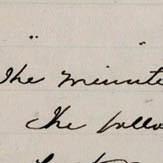 "
The minute
The follo